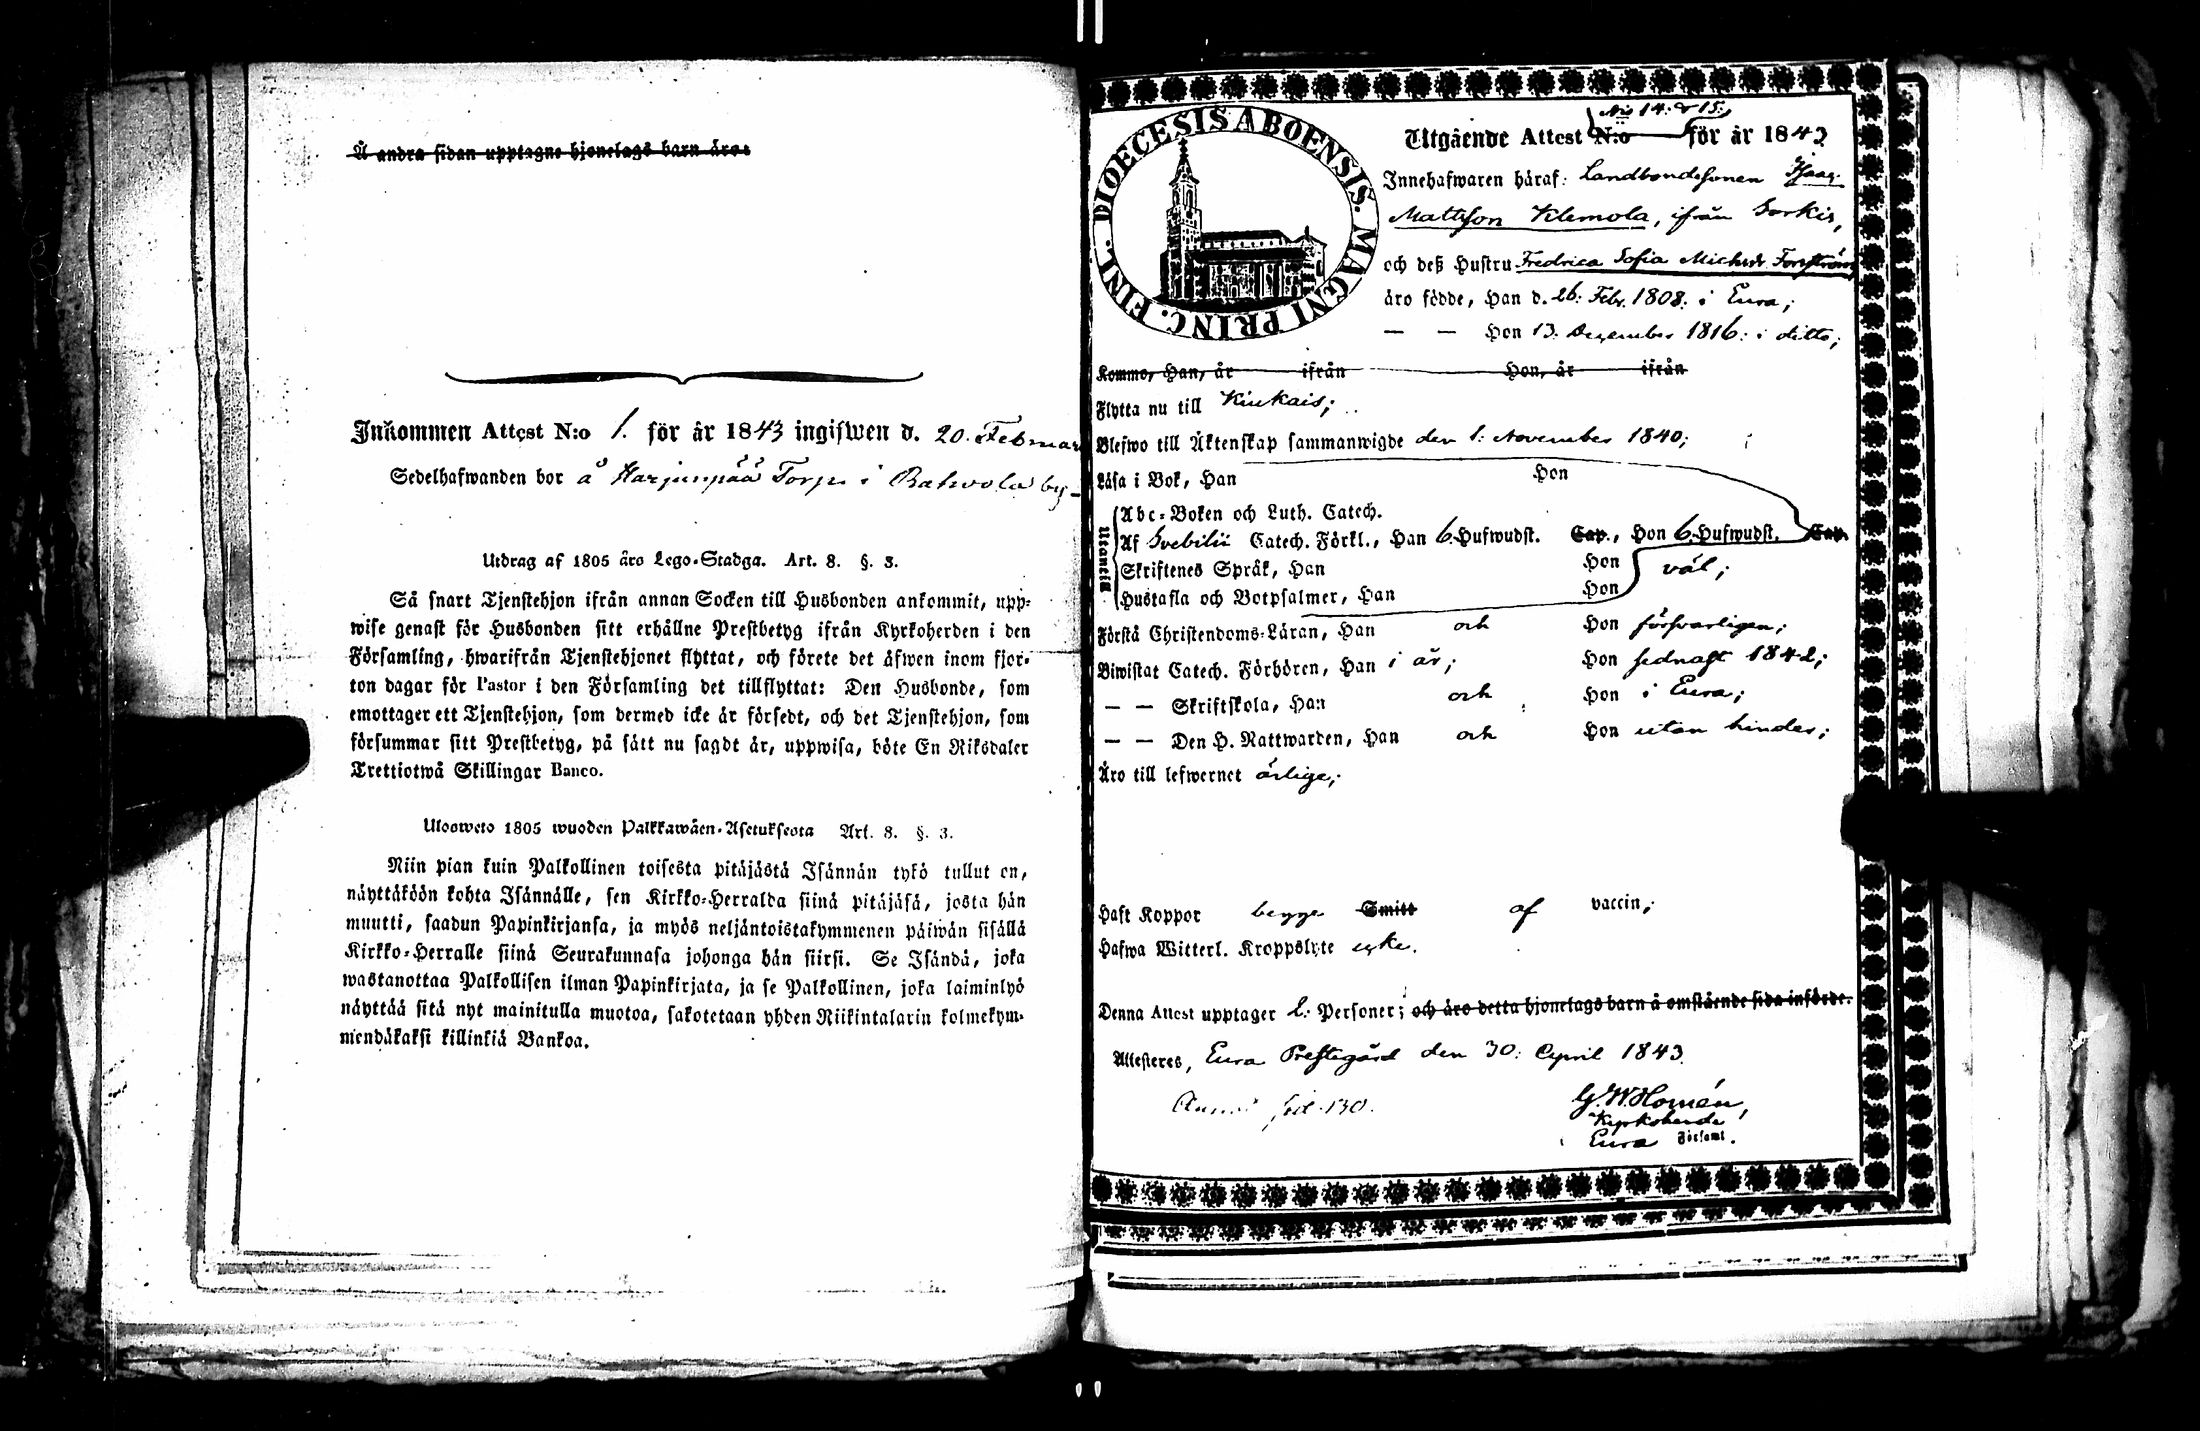 Å andra sidan upptagne hjonelags barn äro:
Inkommen Attest N:o 1. för år 1843 ingifwen d. 20. Februar
Sedelhafwanden bor å Harjunpää Torp i Rahvola by
Utdrag af 1805 års Lego-Stadga. Art. 8. §. 3.
Så snart Tjenstehjon ifrån annan Socken till Husbonden ankommit, upp-
wise genast för Husbonden sitt erhållne Prestbetyg ifrån Kyrkoherden i den
Församling, hwarifrån Tjenstehjonet flyttat, och förete det äfwen inom fjor-
ton dagar för Pastor i den Församling det tillflyttat: Den Husbonde, som
emottager ett Tjenstehjon, som dermed icke är försedt, och det Tjenstehjon, som
försummar sitt Prestbetyg, på sätt nu sagdt är, uppwisa, böte En Riksdaler
Trettiotwå Skillingar Banco.
Ulosweto 1805 wuoden Palkkawäen-Asetuksesta Art. 8. §. 3.
Niin pian kuin Palkollinen toisesta pitäjästä Isännän tykö tullut on,
näyttäköön kohta Isännälle, sen Kirkko-Herralda siinä pitäjäsä, josta hän
muutti, saadun Papinkirjansa, ja myös neljäntoistakymmenen päiwän sisällä
Kirkko-Herralle siinä Seurakunnasa johonga hän siirsi. Se Isändä, joka
wastanottaa Palkollisen ilman Papinkirjata, ja se Palkollinen, joka laiminlyö
näyttää sitä nyt mainitulla muotoa, sakotetaan yhden Riikintalarin kolmekym-
mendäkaksi killinkiä Bankoa.
DIOECESIS ABOENSIS. MAGNI PRINC. FINL.
N:is 14. & 15.
Utgående Attest N:o för år 1843
Innehafwaren häraf: Landbondesonen Isaac
Mattsson Klemola, ifrån Sorkis,
och deß Hustru Fredrica Sofia Michelsdr. Forsström
äro födde, Han d. 26. Febr. 1808. i Eura;
— — Hon 13. December 1816. i ditto;
Kommo, Han, år ifrån Hon, år ifrån
Flytta nu till Kiukais;
Blefwo till Äktenskap sammanwigde den 1. November 1840;
Läsa i Bok, Han Hon
Utantill
Abc-Boken och Luth. Catech.
Af Svebilii Catech. Förkl., Han 6. Hufwudst. Cap., Hon 6. Hufwudst. Cap.
Skriftenes Språk, Han Hon väl;
Hustafla och Botpsalmer, Han Hon
Förstå Christendoms-Läran, Han och Hon försvarligen;
Biwistat Catech. Förhören, Han i år; Hon sednast 1842;
— — Skriftskola, Han och Hon i Eura;
— — Den H. Nattwarden, Han och Hon utan hinder;
Äro till lefwernet ärlige;
Haft Koppor begge Smitt af vaccin;
Hafwa Witterl. Kroppslyte icke.
Denna Attest upptager 2. Personer; och äro detta hjonelags barn å omstående sida införde.
Attesteres, Eura Prestegård den 30. April 1843.
fol. 130.
G. W. Homén,
Kyrkoherde
Eura Församl.